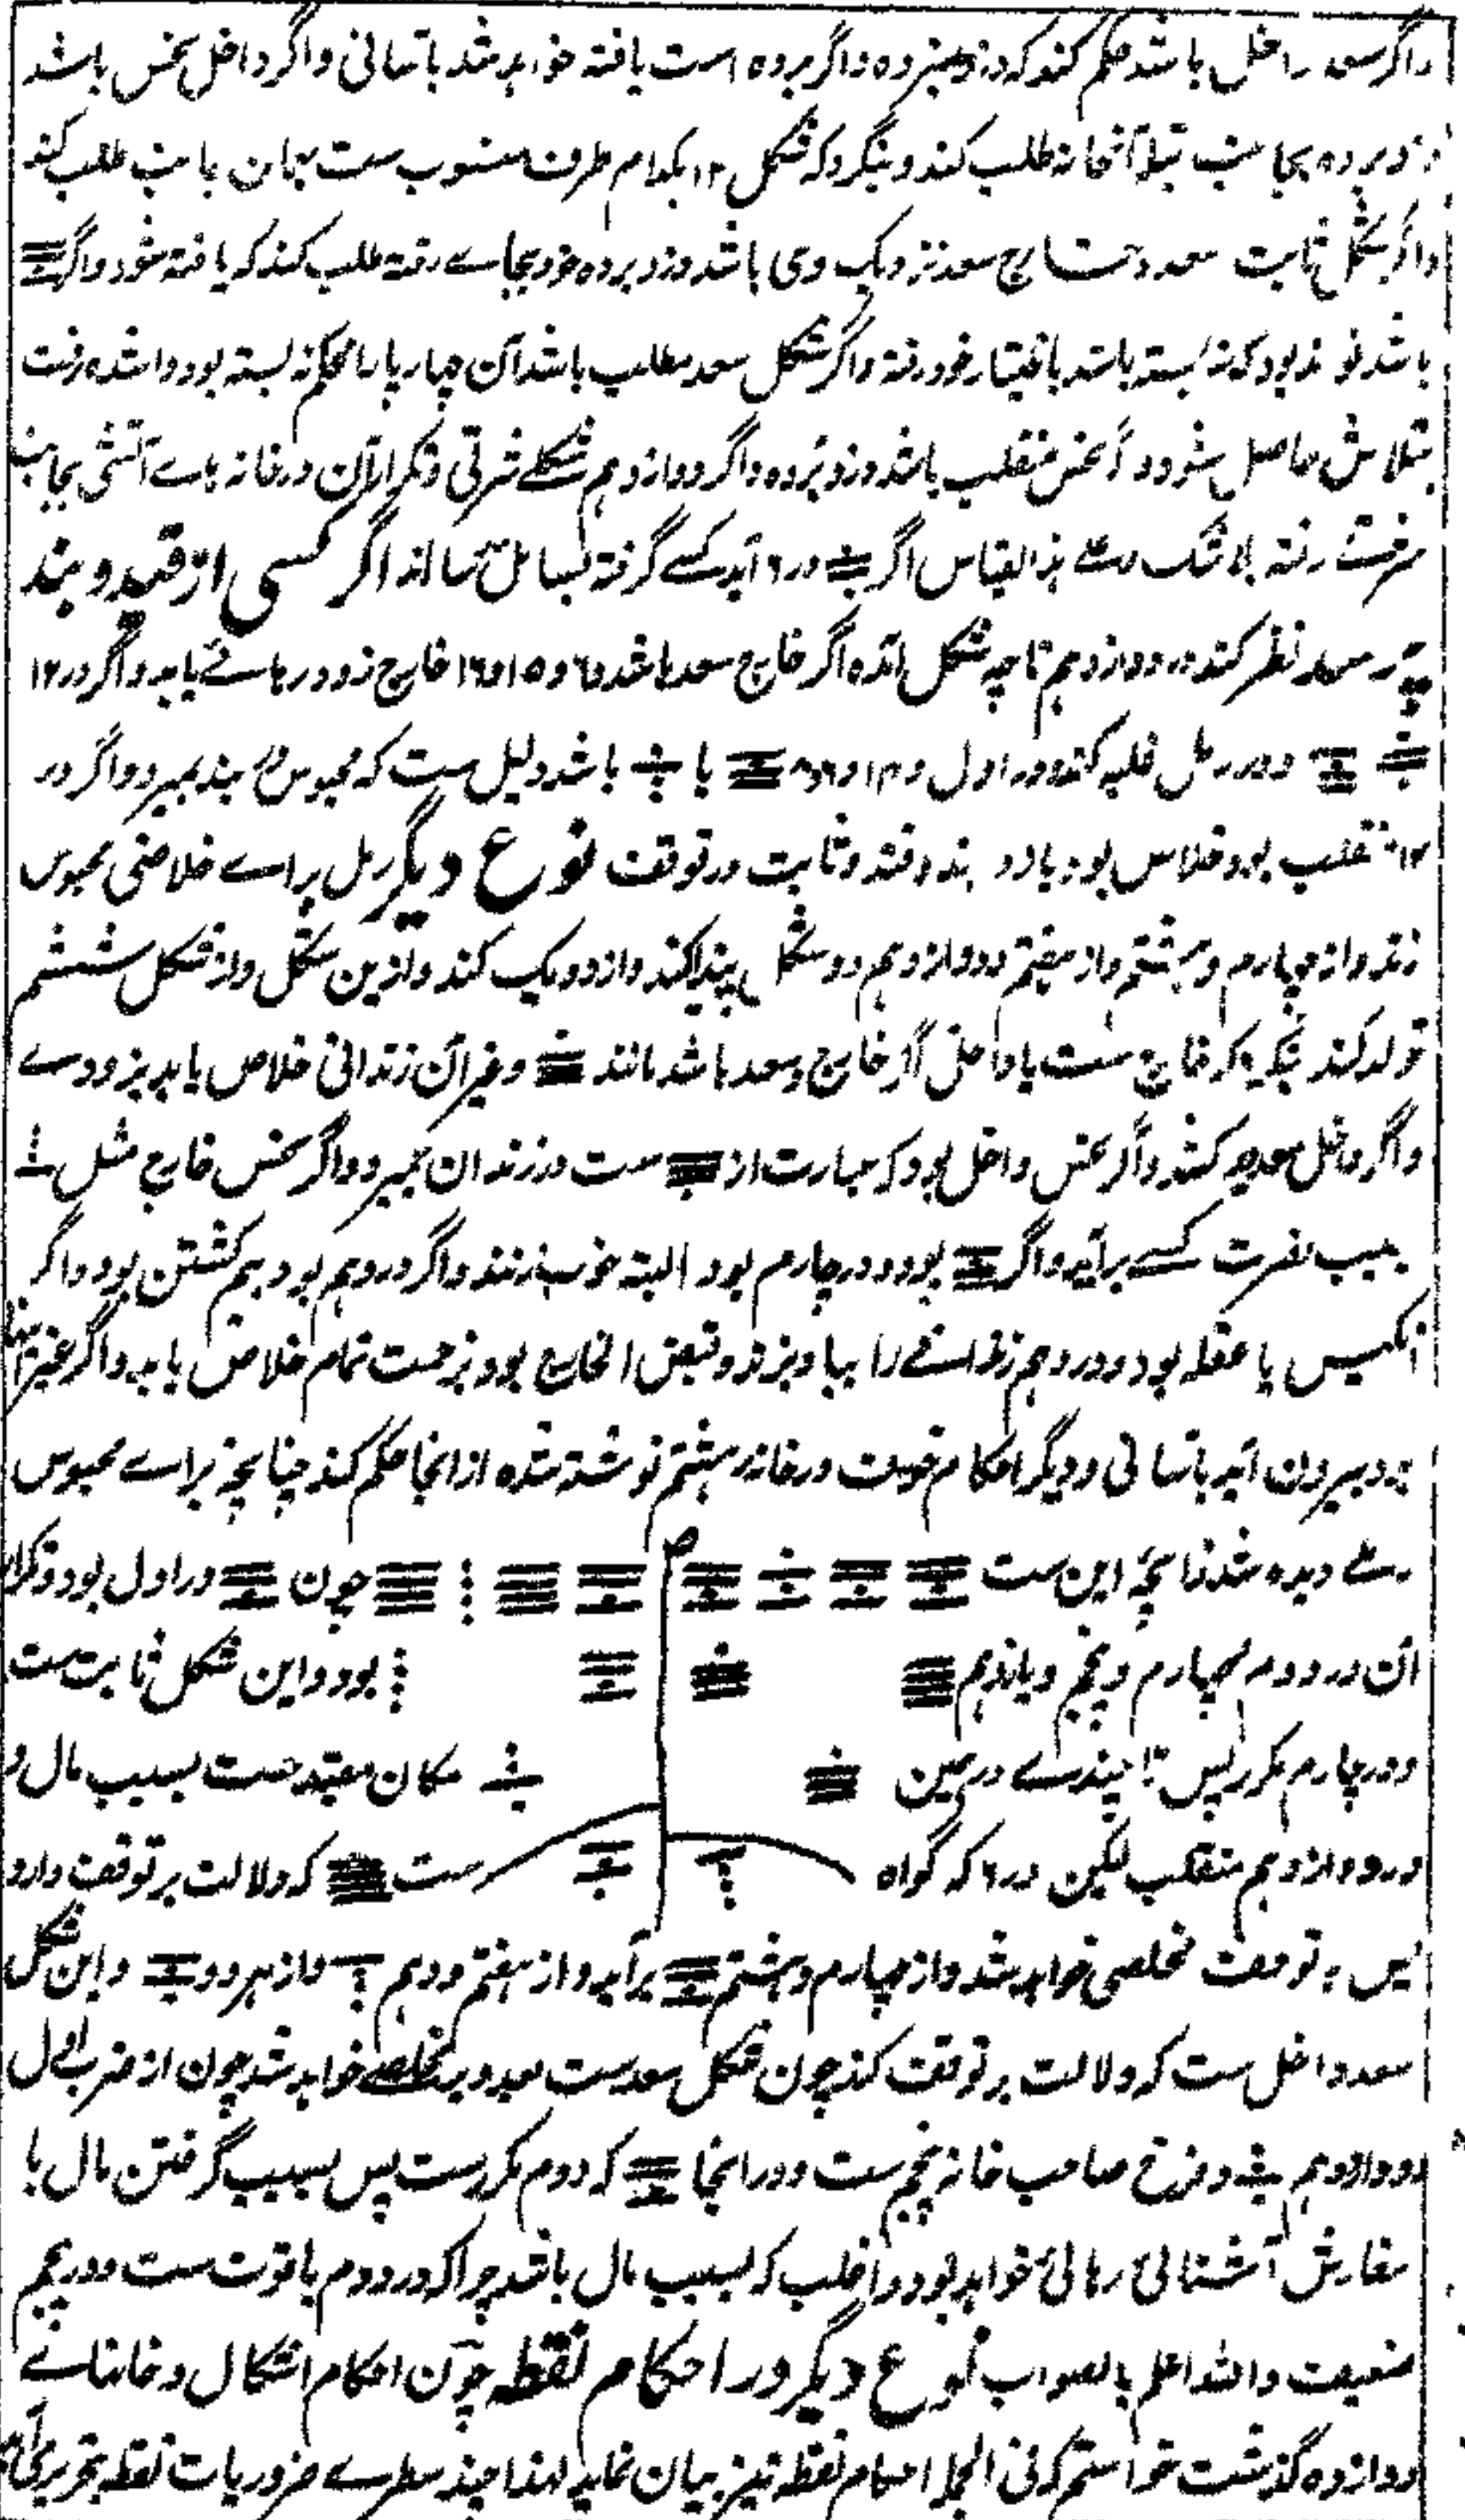 واگر سعد داخل باشد حکم کند که دزد نبرده واگر برده است یافته خواهد شد بآسانی واگر داخل نحس باشد
دزد برده بجانب قبلۀ آنخانه طلب کند و بنگرد که شکل ۱۲ بکدام طرف منسوب ست بهمان جانب طلب کند
واگر شکل ثابت سعد و خارج سعد نزدیک وی باشد دزد برده خود بجاے رفته طلب کند که یافته شود واگر
باشد خود بود که نه بسته باشد باختیار خود رفته واگر شکل سعد منقلب باشد آن چهارپا را محکم نه بسته بود وا شده رفت
بتلاش حاصل شود و اگر نحس منقلب باشد دزد برده واگر دوازدهم شکلے شرقی و تکرار آن در خانه هاے آتشی بجانب
مشرق رفته بلا شک علے هذا القیاس اگر در ۶ آید کسے گرفته بسایل رساند اگر کسی از قید و بند
پرسد نظر کند در دوازدهم تا چه شکل آمده اگر خارج سعد باشد و ۶ و ۱۵ و ۱۶ خارج زود رهائے یابد واگر در ۱۲
و در رمل غلبه کند و در اول و یا باشد دلیل ست که محبوس در بند بمیرد واگر در
۱۲ منقلب بود خلاص بود باز در بند افتد و ثابت در توقف نوع دیگر رمل براے خلاصی محبوس
زند و از چهارم و هشتم و از هفتم و دوازدهم دو شکل پیدا کند و از دو یک کند و ازین شکل و از شکل ششم
تولد کند بنگرد که خارج ست یا داخل اگر خارج و سعد باشد مانند و غیر آن زندانی خلاص یابد بزودے
واگر داخل سعد بود کشد واگر نحس داخل بود که عبارت از ست در زندان بمیرد واگر نحس خارج مثل
بسبب نفرت کسے برآید واگر بود و در چهارم بود البته خوب زنند واگر در دهم بود بیم کشتن بود واگر
انکیس یا عقله بود و در دهم زندانے را بیاویزد و قبض الخارج بود بزحمت تمام خلاص یابد واگر غیر اینها
بود بیرون آید بآسانی و دیگر احکام خوف در خانه هشتم نوشته شده از انجا حکم کند چنانچه براے محبوس
رملے دیده شد زایچه این ست چون در اول بود و تکرار
آن در دوم و چهارم و پنجم و یازدهم بود و این شکل ثابت ست
و در چهارم مکرر پس تا چندے در همین مکان مقید ست بسبب مال و
در دوازدهم منقلب لیکن در ۶ که گواه ست که دلالت بر توقف دارد
پس بتوقف مخلصی خواهد شد و از چهارم و هشتم برآید و از هفتم و دهم و از هر دو و این شکل
سعد داخل ست که دلالت بر توقف کند چون شکل سعد ست بعد دیر مخلصے خواهد شد چون از ضرب اول
و دوازدهم و فرح صاحب خانه پنجم ست و در انجا که دوم مکرر ست پس بسبب گرفتن مال با
سفارش آشنائی رهائی خواهد بود و اغلب که بسبب مال باشد چرا که در دوم با قوت ست و در پنجم
ضعیف والله اعلم بالصواب نوع دیگر در احکام نقطه چون احکام اشکال و خانهاے
دوازده گذشت خواستم که فی الجمله احکام نقطه نیز بیان نماید لهذا چند سطرے ضروریات نقطه بتحریر